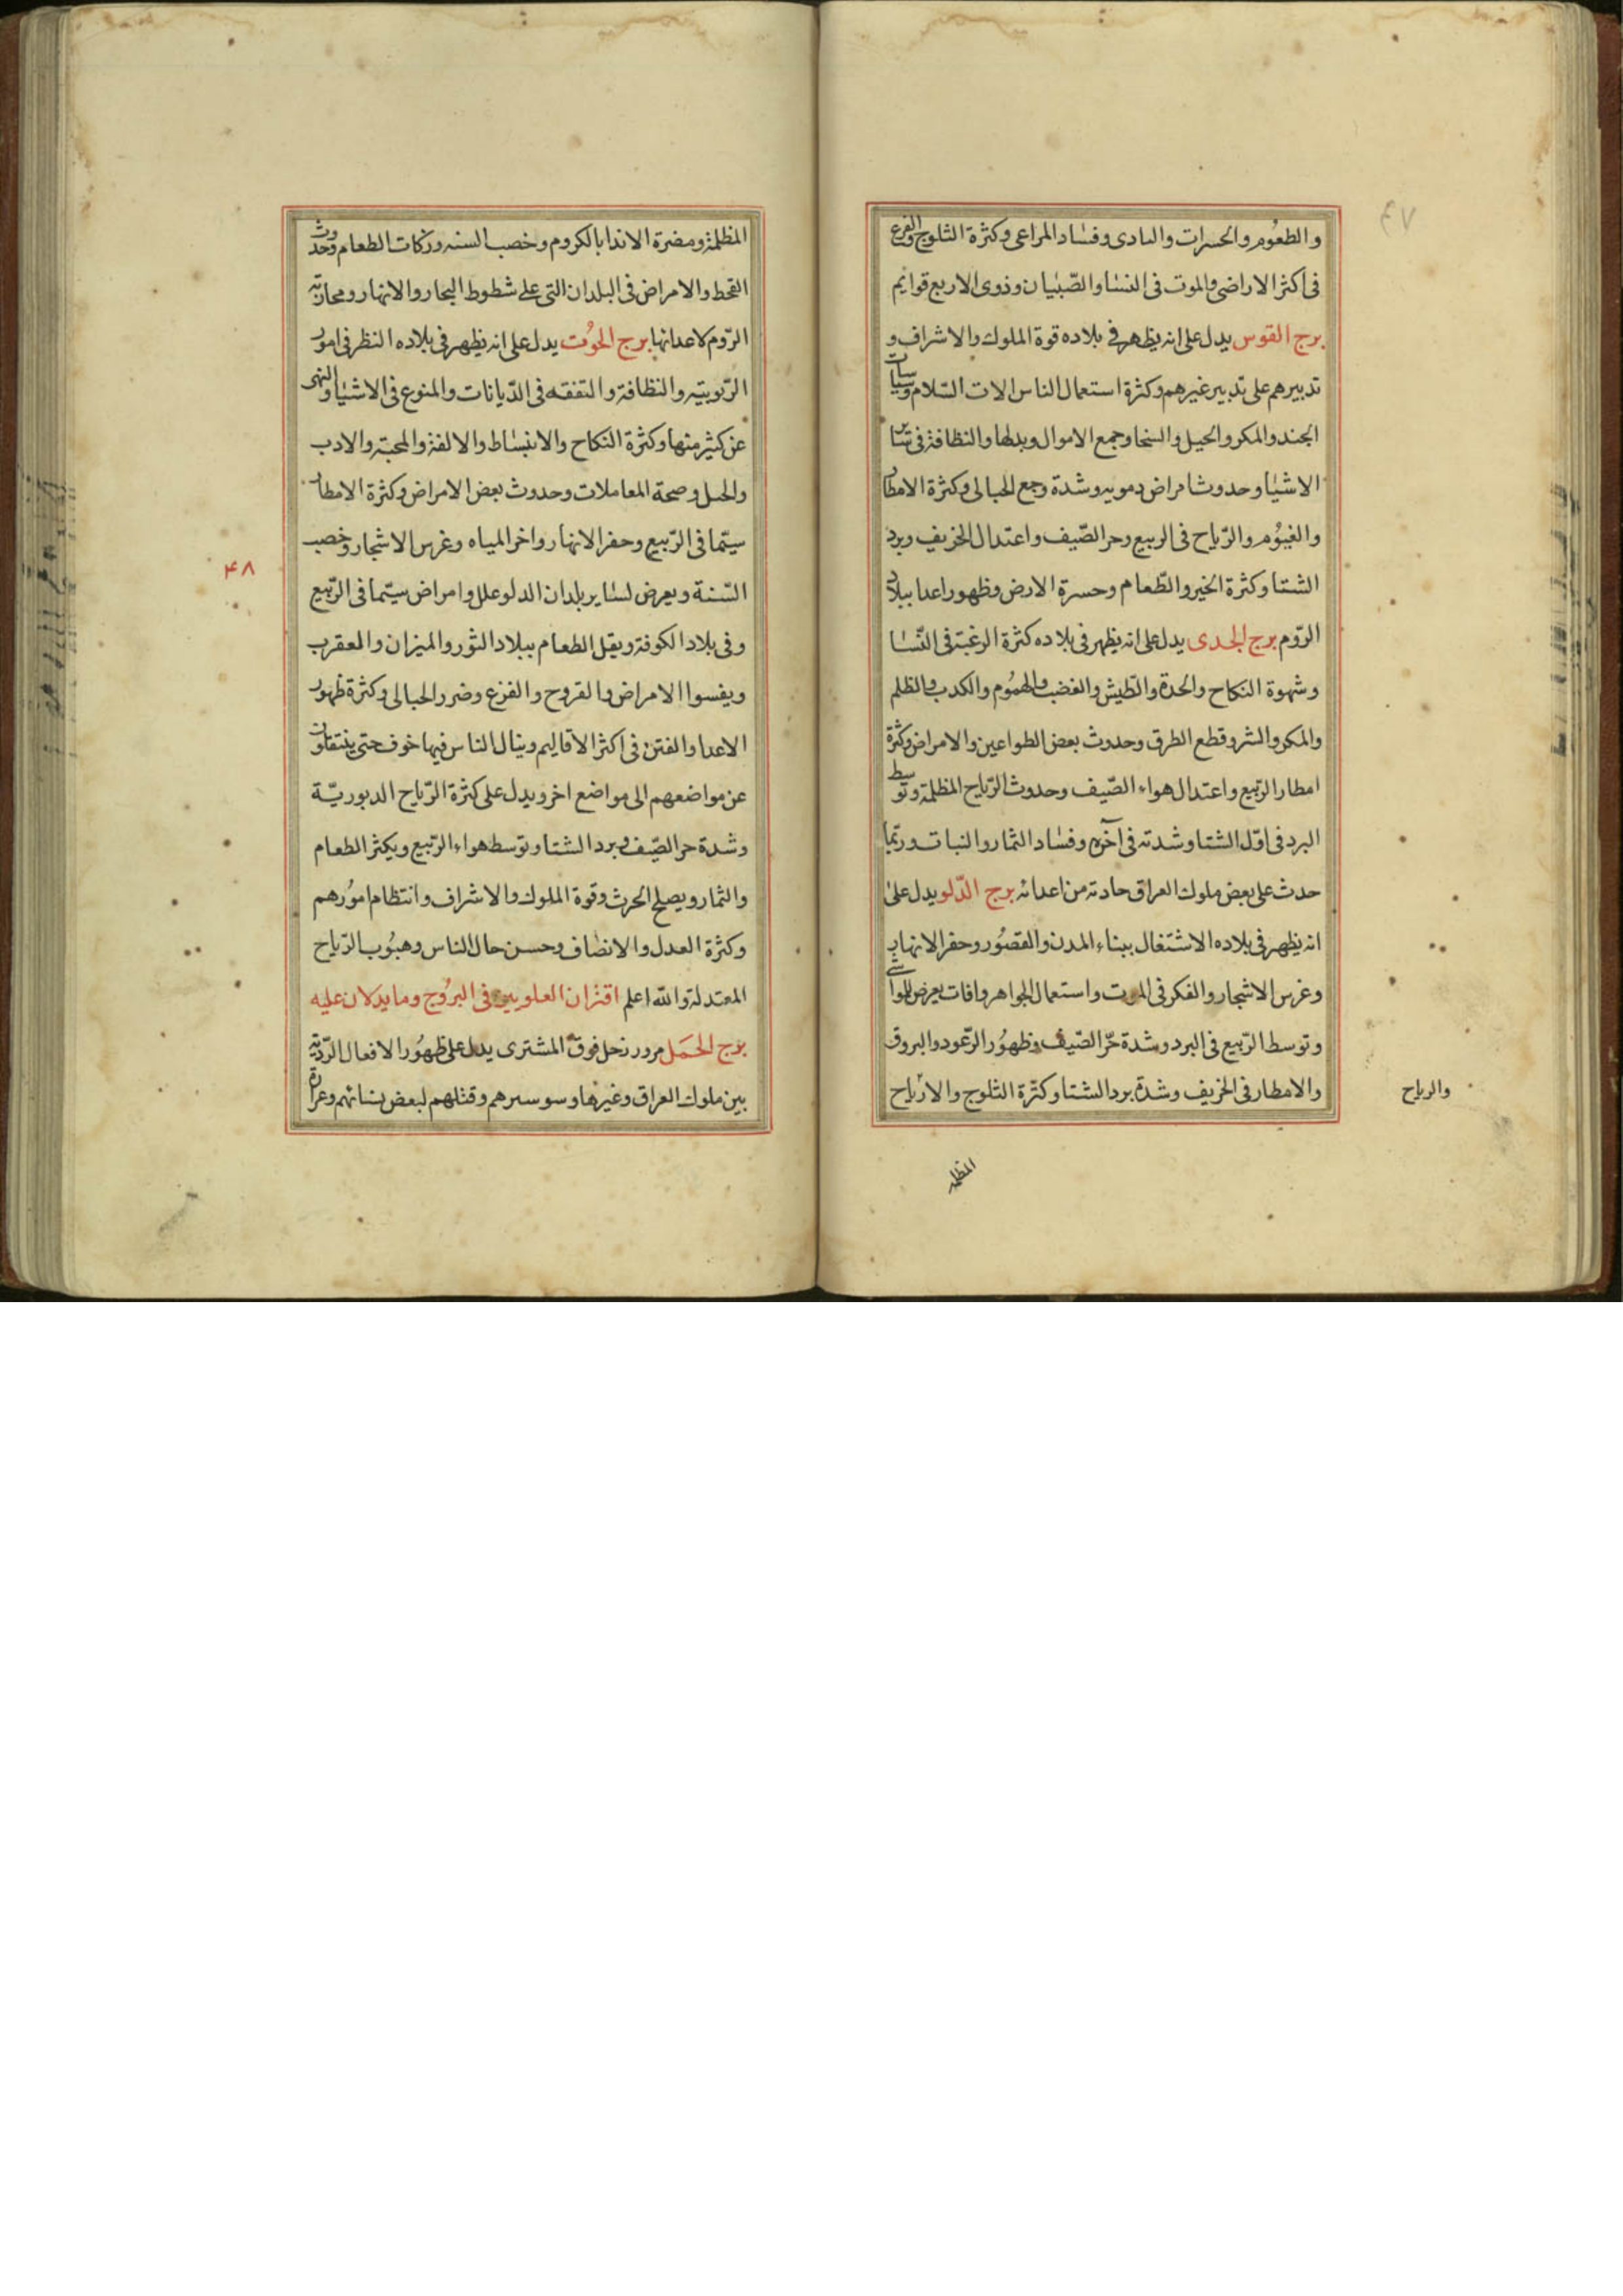 ٤٧
والطعوم والحسرات والبادى وفساد المراعى وكثرة الثلوج والفزع
فى اكثر الاراضى والموت فى النسا والصّبيان وذوى الاربع قوايم
برج القوس يدل على انه يظهر فى بلاده قوة الملوك والاشراف و
تدبيرهم على تدبير غيرهم وكثرة استعمال الناس الات السّلام وسياسات
الجند والمكر والحيل والسخا وجمع الاموال وبدلها والنظافة فى ساير
الاشيا وحدوث امراض دمويه وشدة وجع الحبالى وكثرة الامطار
والغيوُم والرّياح فى الربيع وحر الصّيف واعتدال الخريف وبرد
الشتا وكثرة الخير والطّعام وحسرة الارض وظهور اعدا ببلاد
الرّوم برج الجدى يدل على انه يظهر فى بلاده كثرة الرغبة فى النّسا
وشهوة النكاح والحدة والطيش والغضب والهموُم والكدب والظلم
والمكر والشر وقطع الطرق وحدوث بعض الطواعين والامراض وكثرة
امطار الرّبيع واعتدال هواء الصّيف وحدوث الرّياح المظلمة وتوسط
البرد فى اوّل الشتا وشدته فى آخره وفساد الثمار والنبات وربّما
حدث على بعض ملوك العراق حادثه من اعدائه برج الدّلو يدل على
انه يظهر فى بلاده الاشتغال ببناء المدن والقصُور وحفر الانهار
وغرس الاشجار والفكر فى الموت واستعمال الجواهر وافات يعرض للمواشى
وتوسط الرّبيع فى البرد وشدة حرّ الصّيف وظهوُر الرّعود والبروق
والامطار فى الخريف وشدة برد الشتا وكثرة الثلوج والارياح
والرياح
المظلمة
المظلمة ومضرة الاندا بالكروم وخصب السنه وزكات الطعام وحدوث
القحط والامراض فى البلدان التى على شطوط البحار والانهار ومحاربة
الرّوم لاعدائها برج الحوُت يدل على انه يظهر فى بلاده النظر فى امور
الرّبوبيّه والنظافة والتفقه فى الدّيانات والمنوع فى الاشيا والنهى
عن كثير منها وكثرة النكاح والانبساط والالفة والمحبّة والادب
والحبل وصحة المعاملات وحدوث بعض الامراض وكثرة الامطار
سيّما فى الرّبيع وحفر الانهار واخر المياه وغرس الاشجار وخصب
٤٨
السّنة ويعرض لساير بلدان الدلو علل وامراض سيّما فى الرّبيع
وفى بلاد الكوفة ويقل الطعام ببلاد الثور والميزان والمعقرب
ويفسوا الامراض والقروح والفزع وضرر الحبالى وكثرة ظهور
الاعدا والفتن فى اكثر الاقاليم وينال الناس فيها خوف حتى ينتقلون
عن مواضعهم الى مواضع اخر ويدل على كثرة الرّياح الدبوريّة
وشدة حر الصّيف وبرد الشتا وتوسط هواء الرّبيع ويكثر الطعام
والثمار ويصلح الحرث وقوة الملوك والاشراف وانتظام اموُرهم
وكثرة العدل والانصاف وحسن حال الناس وهبوُب الرّياح
المعتدلة والله اعلم اقتران العلويين فى البروُج وما يدلان عليه
برج الحَمَل مرور زحل فوق المشترى يدل على ظهوُر الافعال الرّديّه
بين ملوك العراق وغيرها وقتلهم لبعض نسائهم